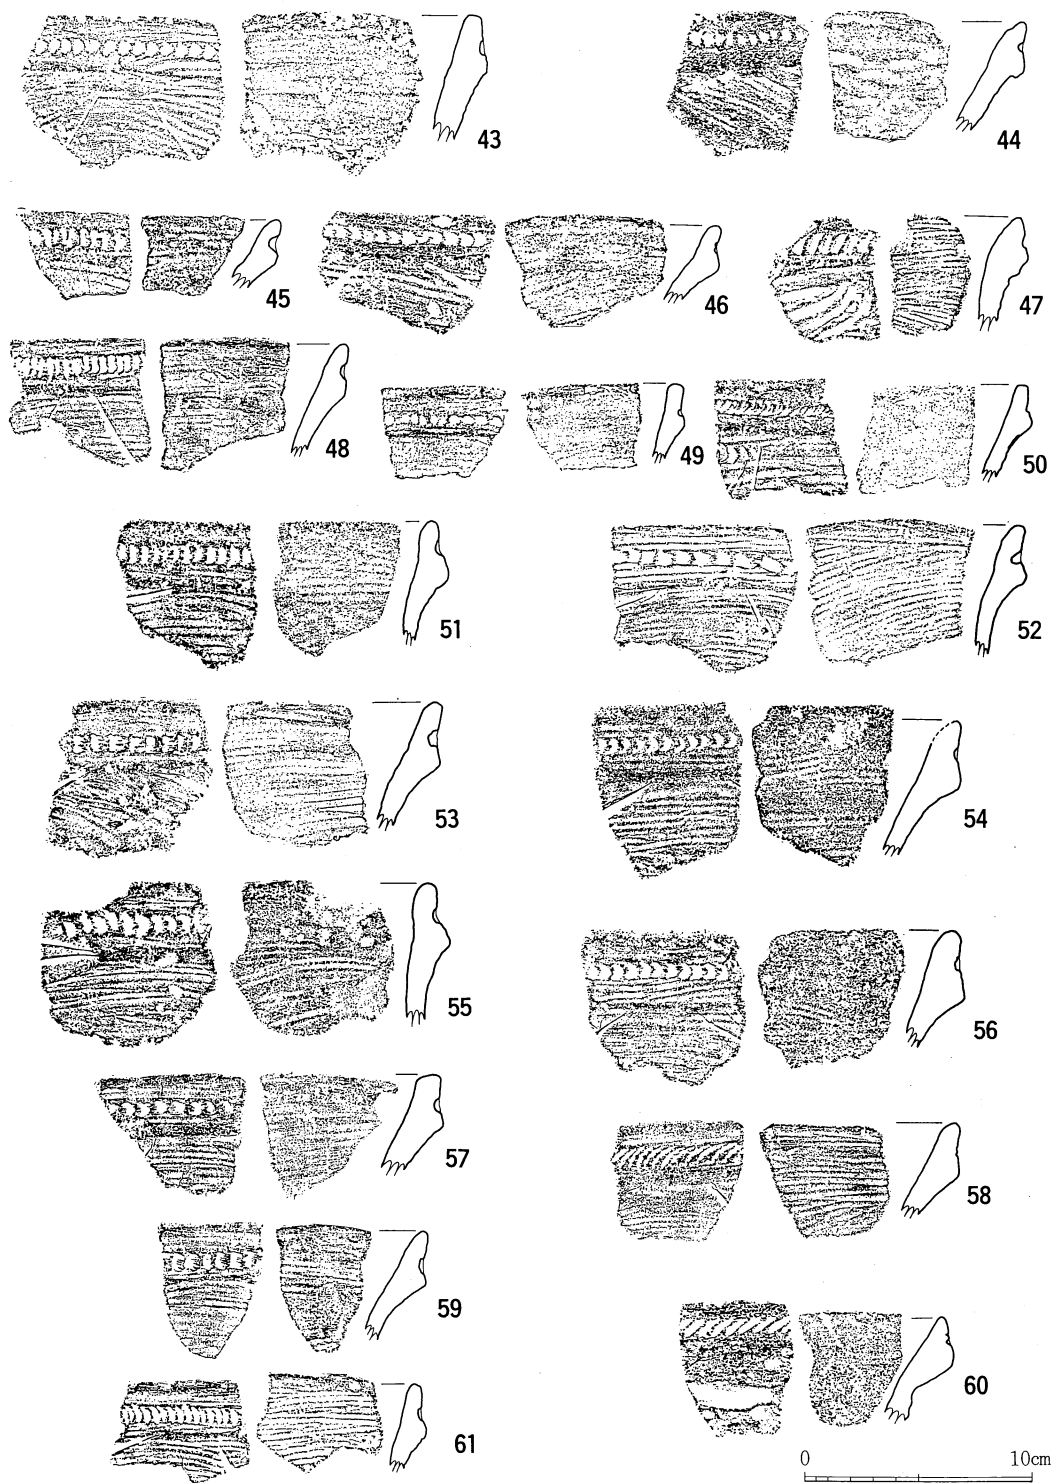 43
44
45
46
47
48
49
50
51
52
53
54
55
56
57
58
59
60
61
0 10cm